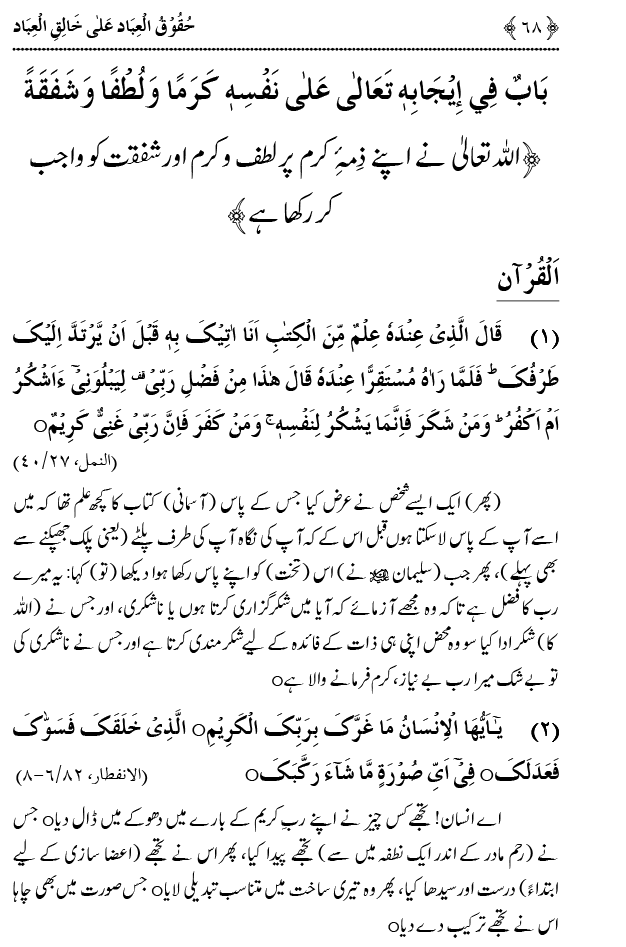 حُقُوْقُ الْعِبَاد عَلٰی خَالِقِ الْعِبَاد ﴿ ۶۸ ﴾
بَابٌ فِي إِيْجَابِهٖ تَعَالٰی عَلٰی نَفْسِهٖ كَرَمًا وَلُطْفًا وَشَفَقَةً
﴿اللہ تعالیٰ نے اپنے ذِمۂِ کرم پر لطف و کرم اور شفقت کو واجب
کر رکھا ہے﴾
اَلْقُرْآن
(۱) قَالَ الَّذِیْ عِنْدَهٗ عِلْمٌ مِّنَ الْکِتٰبِ اَنَا اٰتِیْکَ بِهٖ قَبْلَ اَنْ یَّرْتَدَّ اِلَیْکَ
طَرْفُکَ ؕ فَلَمَّا رَاٰهُ مُسْتَقِرًّا عِنْدَهٗ قَالَ هٰذَا مِنْ فَضْلِ رَبِّیْ ۟ قف لِیَبْلُوَنِیْٓ ءَاَشْکُرُ
اَمْ اَکْفُرُ ؕ وَمَنْ شَکَرَ فَاِنَّمَا یَشْکُرُ لِنَفْسِهٖ ۚ وَمَنْ کَفَرَ فَاِنَّ رَبِّیْ غَنِیٌّ کَرِیْمٌ○
(النمل، ۲۷/۴۰)
(پھر) ایک ایسے شخص نے عرض کیا جس کے پاس (آسمانی) کتاب کا کچھ علم تھا کہ میں
اسے آپ کے پاس لا سکتا ہوں قبل اس کے کہ آپ کی نگاہ آپ کی طرف پلٹے (یعنی پلک جھپکنے سے
بھی پہلے)، پھر جب (سلیمان نے) اس (تخت) کو اپنے پاس رکھا ہوا دیکھا (تو) کہا: یہ میرے
رب کا فضل ہے تاکہ وہ مجھے آزمائے کہ آیا میں شکر گزاری کرتا ہوں یا ناشکری، اور جس نے (اللہ
کا) شکر ادا کیا سو وہ محض اپنی ہی ذات کے فائدہ کے لیے شکر مندی کرتا ہے اور جس نے ناشکری کی
تو بے شک میرا رب بے نیاز، کرم فرمانے والا ہے○
(۲) یٰٓاَیُّهَا الْاِنْسَانُ مَا غَرَّکَ بِرَبِّکَ الْکَرِیْمِ○ الَّذِیْ خَلَقَکَ فَسَوّٰکَ
فَعَدَلَکَ○ فِیْٓ اَیِّ صُوْرَةٍ مَّا شَآءَ رَکَّبَکَ○ (الانفطار، ۸۲/۶-۸)
اے انسان! تجھے کس چیز نے اپنے ربِ کریم کے بارے میں دھوکے میں ڈال دیا○ جس
نے (رحمِ مادر کے اندر ایک نطفہ میں سے) تجھے پیدا کیا، پھر اس نے تجھے (اعضا سازی کے لیے
ابتداءً) درست اور سیدھا کیا، پھر وہ تیری ساخت میں متناسب تبدیلی لایا○ جس صورت میں بھی چاہا
اس نے تجھے ترکیب دے دیا○